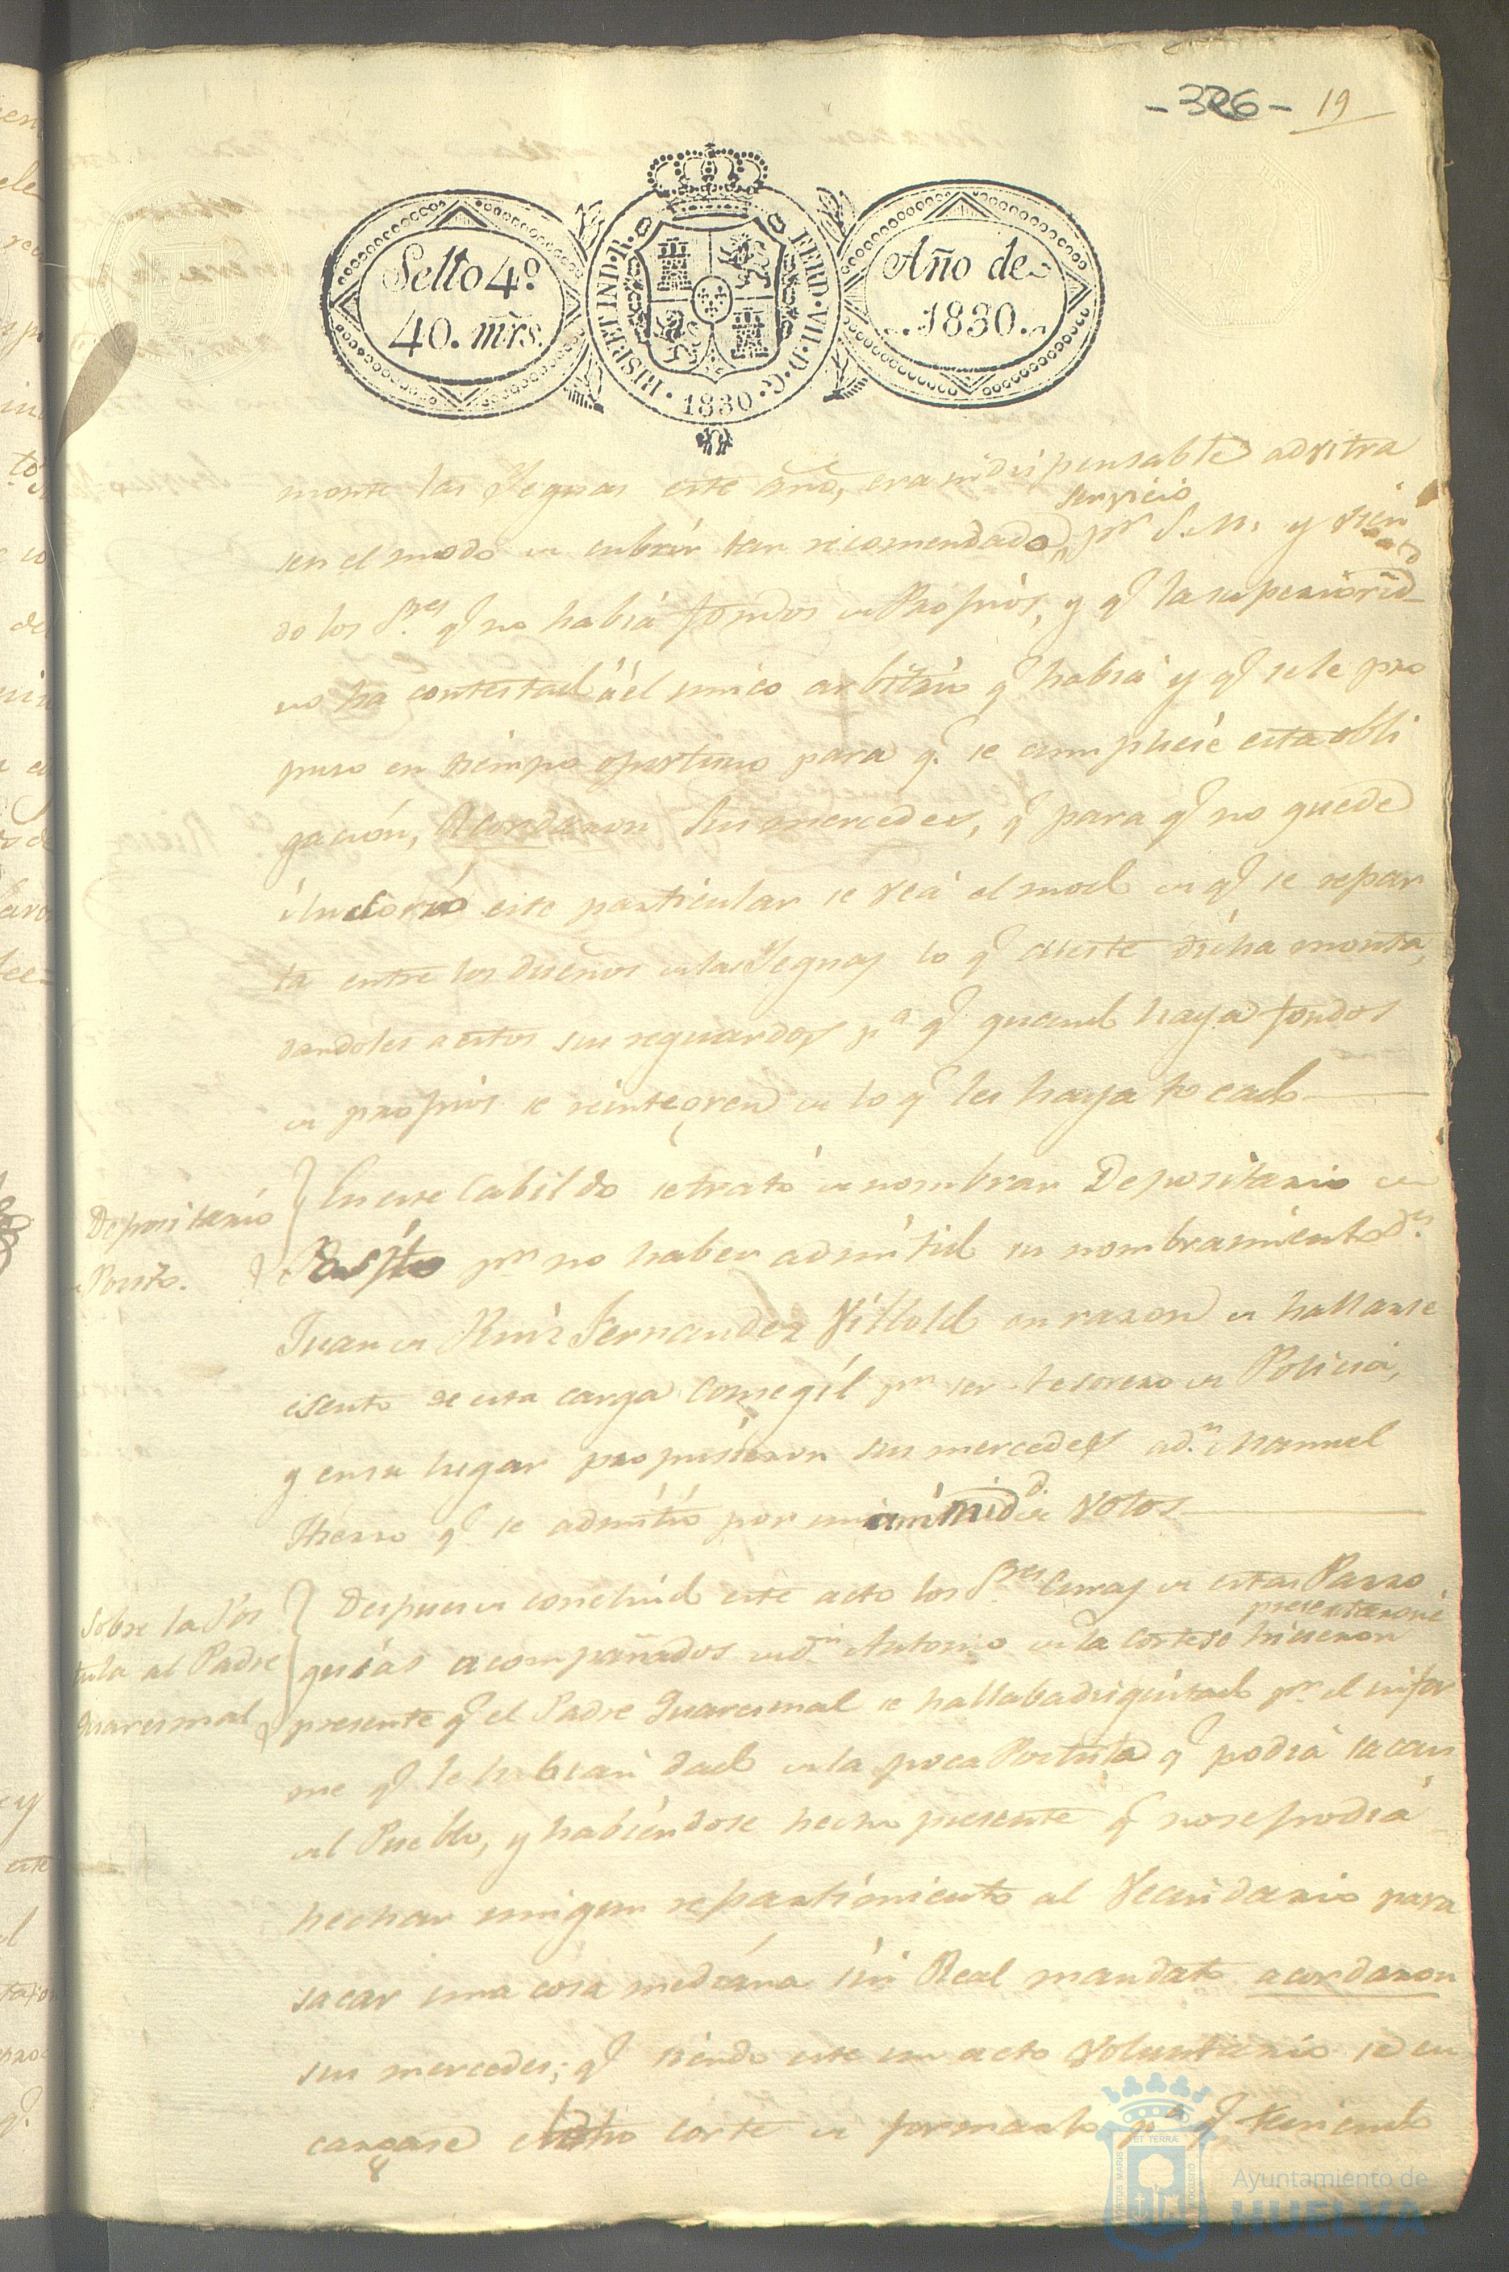 - 326 - 19
Sello 4º
40. mrs.
HISP. ET IND. R. FERD. VII. D. G. 1830
Año de
1830.
monte las Yeguas este año, era indispensable advitra
servicio
sen el modo de cubrir tan recomendado pr S. M. y vien
do los Sres qe no habiá fondos de Propiós, y qe la superioridd
no ha contestado á el unico arbitrio qe habiá y qe se le pro
puso en tiempo oportuno para qe se cumpliese esta obli
gación, Acordaron Sus mercedes, qe para qe no quede
ilusorio este particular se veá el modo de qe se repar
ta entre los dueños de las Yeguas lo qe cueste dicha monta,
dandoles a estos sus reguardos pa qe quando haya fondos
de propios se reintegren de lo qe les haya tocado
Depositario
de Posito.
En este Cabildo se trató de nombrar Depositario de
Posito pr no haber admitido su nombramiento Dn
Juan de Ruiz Fernandez Villoldo en razon de hallarse
esento de esta carga Consegil pr ser tesorero de Policiá,
y en su lugar propusieron sus mercedes a dn Manuel
Hierro qe se admitió por unanimidd de votos
Sobre la Pos
tula al Padre
Quaresmal
Despues de concluido este acto los Sres Curas de estas Parro
presentaron e
quias acompañados de dn Antonio de la Corte se hicieron
presente qe el Padre Quaresmal se hallaba disgustado pr el infor
me qe le habian dado de la poca Postula qe podiá sacar
del Pueblo, y habiendose hecho presente qe no se podiá
hechar ningun repartimiento al Vecindario para
sacar una cosa mediana sin Real mandato acordaron
sus mercedes; qe siendo este un acto voluntario se en
cargase dicho Corte de formarlo pa qe teniendo
Ayuntamiento de
HUELVA